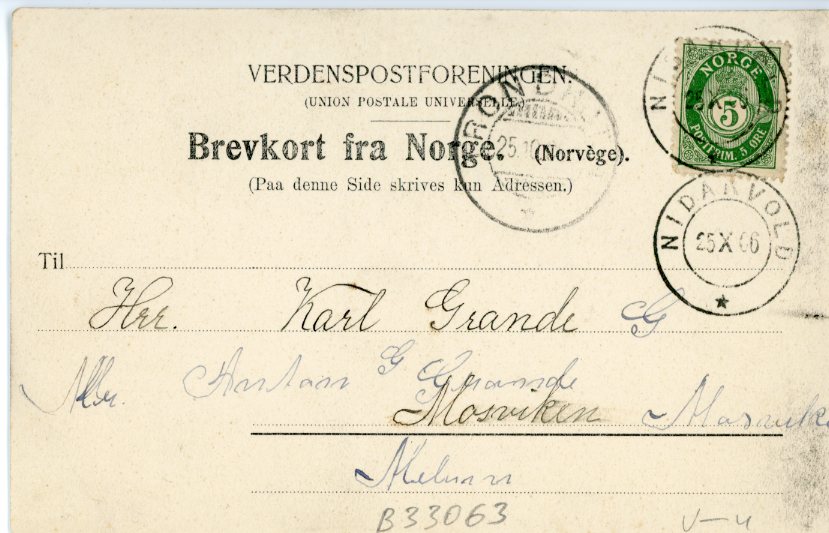 VERDENSPOSTFORENINGEN.
(UNION POSTALE UNIVERSELLE)
Brevkort fra Norge. (Norvège).
(Paa denne Side skrives kun Adressen.)
NORGE
5
POSTFRIM. 5 ØRE
NIDARVOLD
25 X 06
Til
Hrr. Karl Grande G
Anton G Grande
Mosviken
B33063